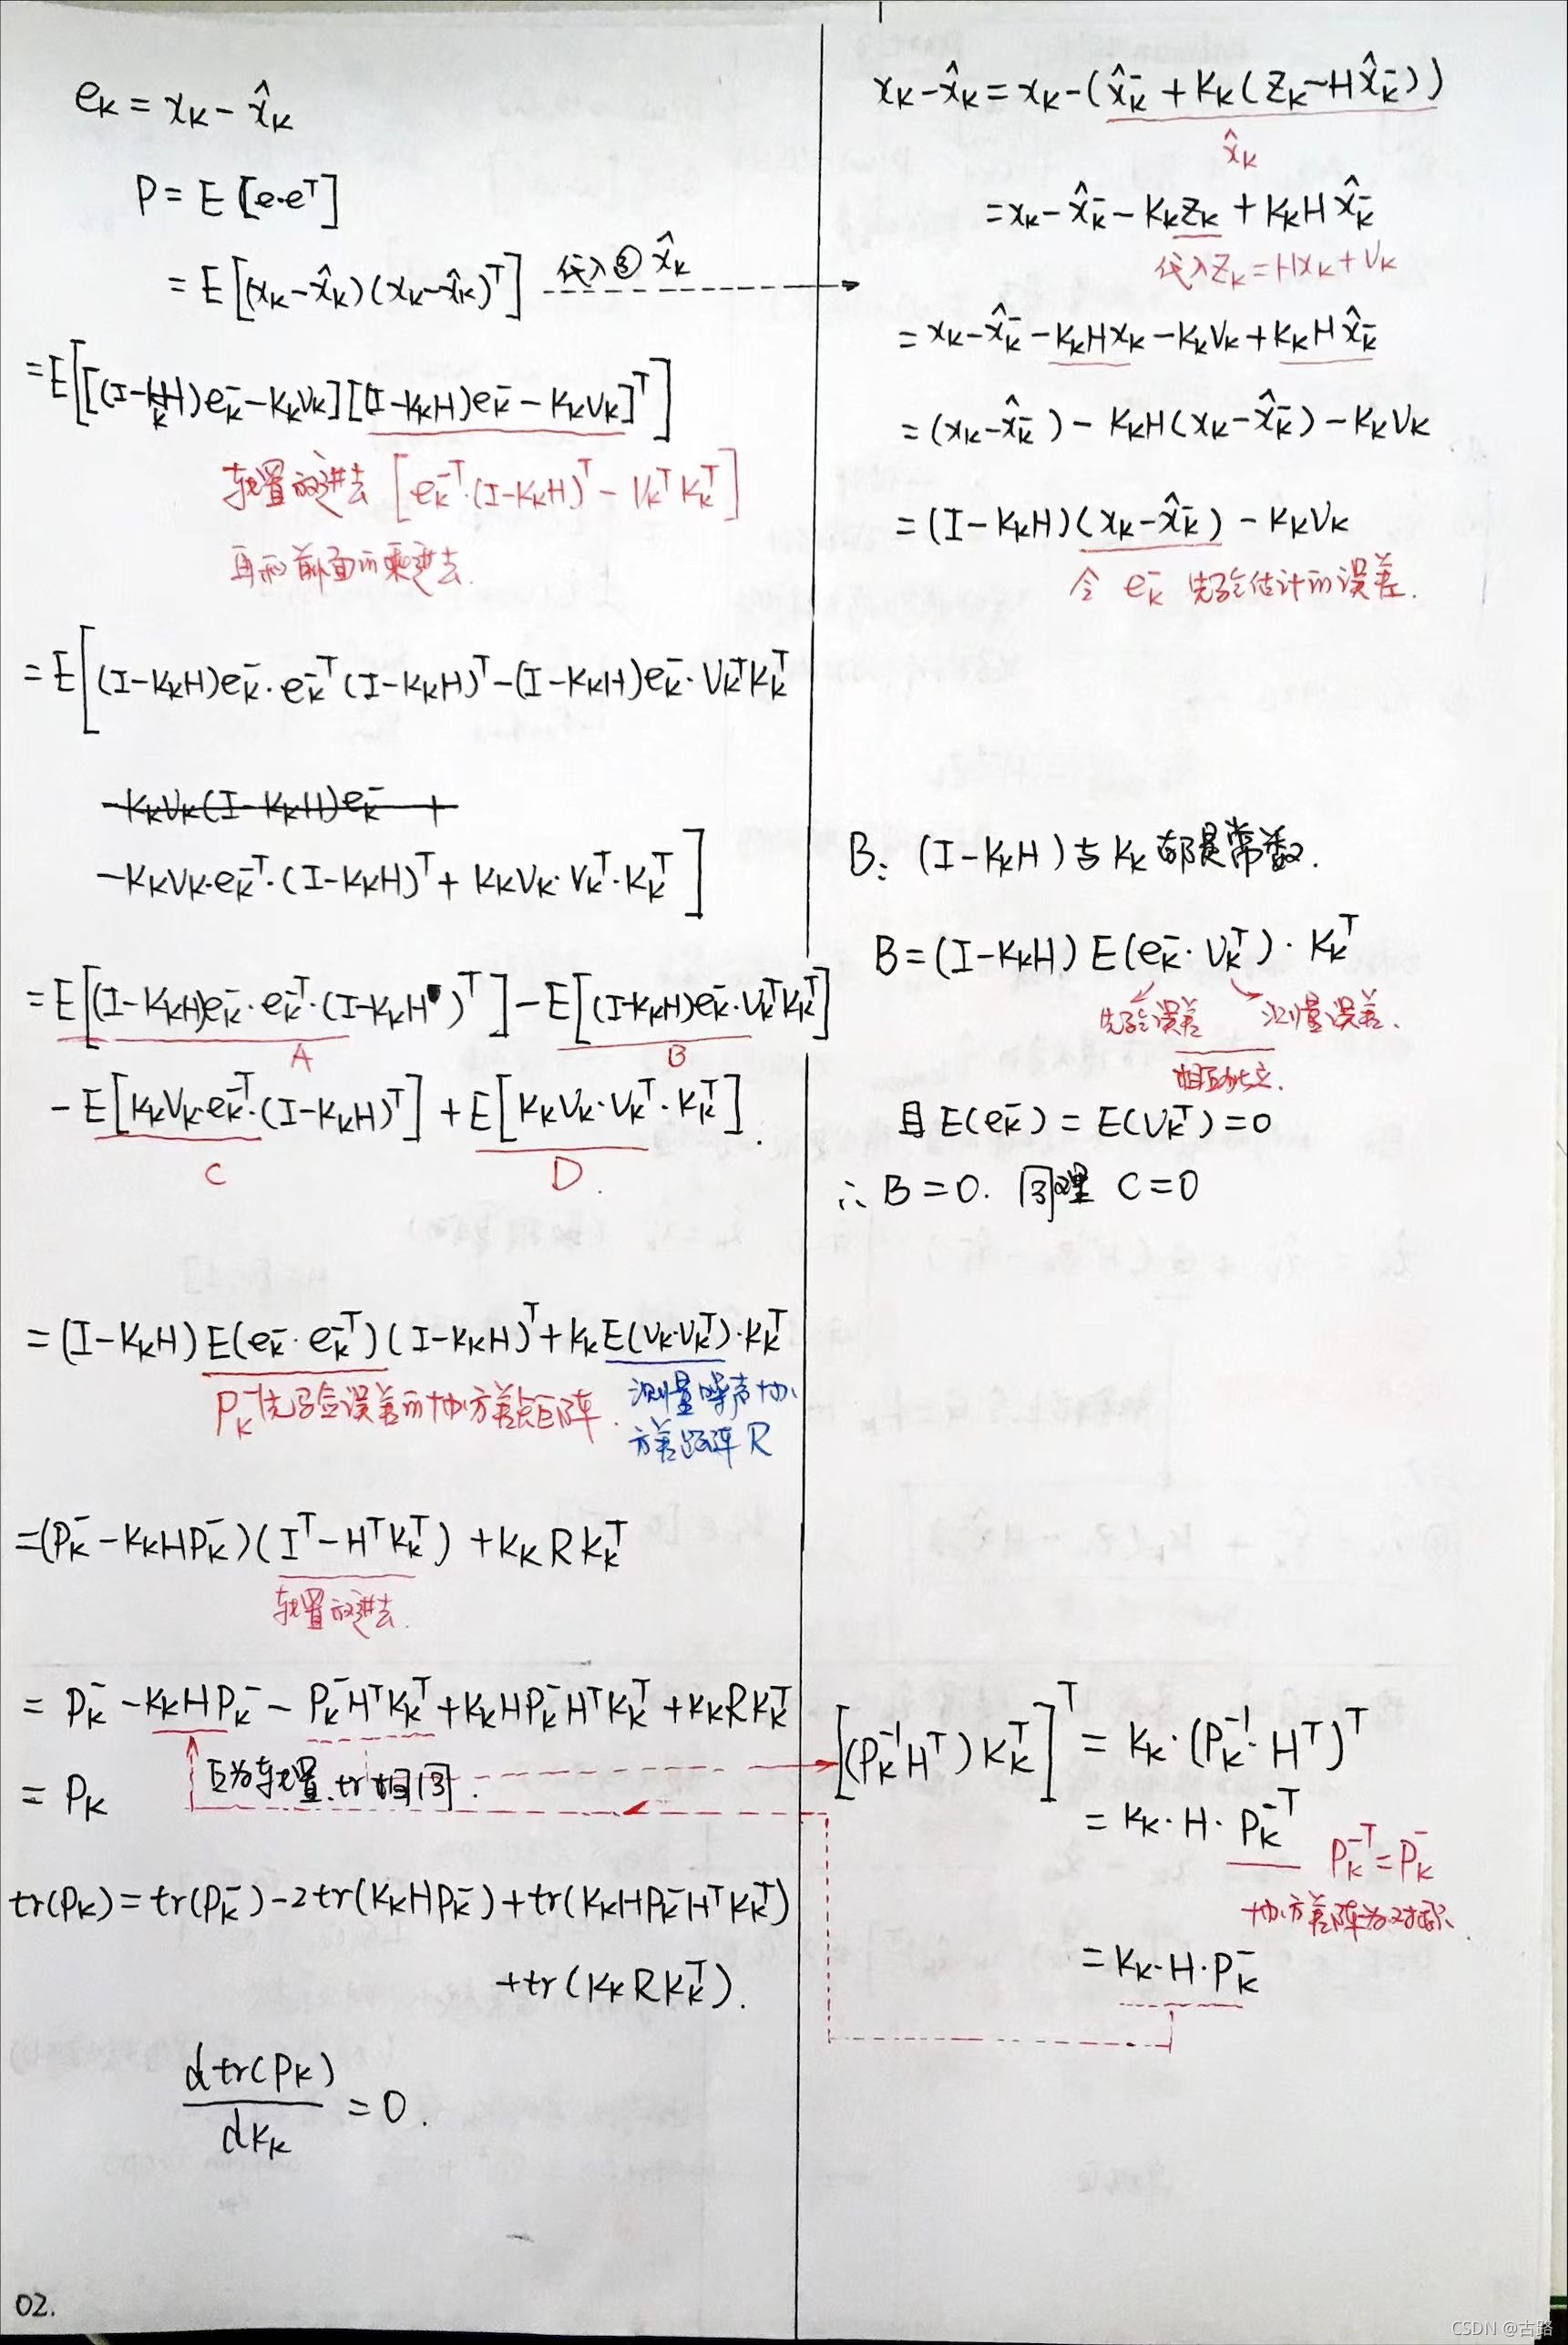 e_k = x_k - x̂_k
P = E[e·eᵀ]
= E[(x_k - x̂_k)(x_k - x̂_k)ᵀ] 代入③ x̂_k
= E[[(I-K_kH)e_k⁻ - K_kV_k][(I-K_kH)e_k⁻ - K_kV_k]ᵀ]
转置放进去 [e_k⁻ᵀ·(I-K_kH)ᵀ - V_kᵀK_kᵀ]
再和前面的乘进去.
= E[(I-K_kH)e_k⁻·e_k⁻ᵀ(I-K_kH)ᵀ - (I-K_kH)e_k⁻·V_kᵀK_kᵀ
-K_kV_k(I-K_kH)e_k⁻ +
-K_kV_k·e_k⁻ᵀ·(I-K_kH)ᵀ + K_kV_k·V_kᵀ·K_kᵀ]
= E[(I-K_kH)e_k⁻·e_k⁻ᵀ·(I-K_kH)ᵀ] - E[(I-K_kH)e_k⁻·V_kᵀK_kᵀ]
A B
- E[K_kV_k·e_k⁻ᵀ·(I-K_kH)ᵀ] + E[K_kV_k·V_kᵀ·K_kᵀ].
C D.
= (I-K_kH)E(e_k⁻·e_k⁻ᵀ)(I-K_kH)ᵀ + K_kE(V_k·V_kᵀ)·K_kᵀ
P_k⁻先验误差的协方差矩阵.
测量噪声协
方差矩阵 R
= (P_k⁻ - K_kHP_k⁻)(Iᵀ - HᵀK_kᵀ) + K_kRK_kᵀ
转置放进去.
= P_k⁻ - K_kHP_k⁻ - P_k⁻HᵀK_kᵀ + K_kHP_k⁻HᵀK_kᵀ + K_kRK_kᵀ
互为转置.tr相同.
= P_k
tr(P_k) = tr(P_k⁻) - 2tr(K_kHP_k⁻) + tr(K_kHP_k⁻HᵀK_kᵀ)
+ tr(K_kRK_kᵀ).
d tr(P_k)
/ dK_k = 0.
02.
x_k - x̂_k = x_k - (x̂_k⁻ + K_k(Z_k - Hx̂_k⁻))
x̂_k
= x_k - x̂_k⁻ - K_kZ_k + K_kHx̂_k⁻
代入Z_k = Hx_k + V_k
= x_k - x̂_k⁻ - K_kHx_k - K_kV_k + K_kHx̂_k⁻
= (x_k - x̂_k⁻) - K_kH(x_k - x̂_k⁻) - K_kV_k
= (I-K_kH)(x_k - x̂_k⁻) - K_kV_k
令 e_k⁻ 先验估计的误差.
B: (I-K_kH)与K_k都是常数.
B = (I-K_kH)E(e_k⁻·V_kᵀ)·K_kᵀ
先验误差 测量误差.
相互独立.
且 E(e_k⁻) = E(V_kᵀ) = 0
∴ B = 0. 同理 C = 0
[(P_k⁻¹Hᵀ)K_kᵀ]ᵀ = K_k·(P_k⁻¹·Hᵀ)ᵀ
= K_k·H·P_k⁻ᵀ
P_k⁻ᵀ = P_k⁻
协方差阵为对称.
= K_k·H·P_k⁻
CSDN @古路